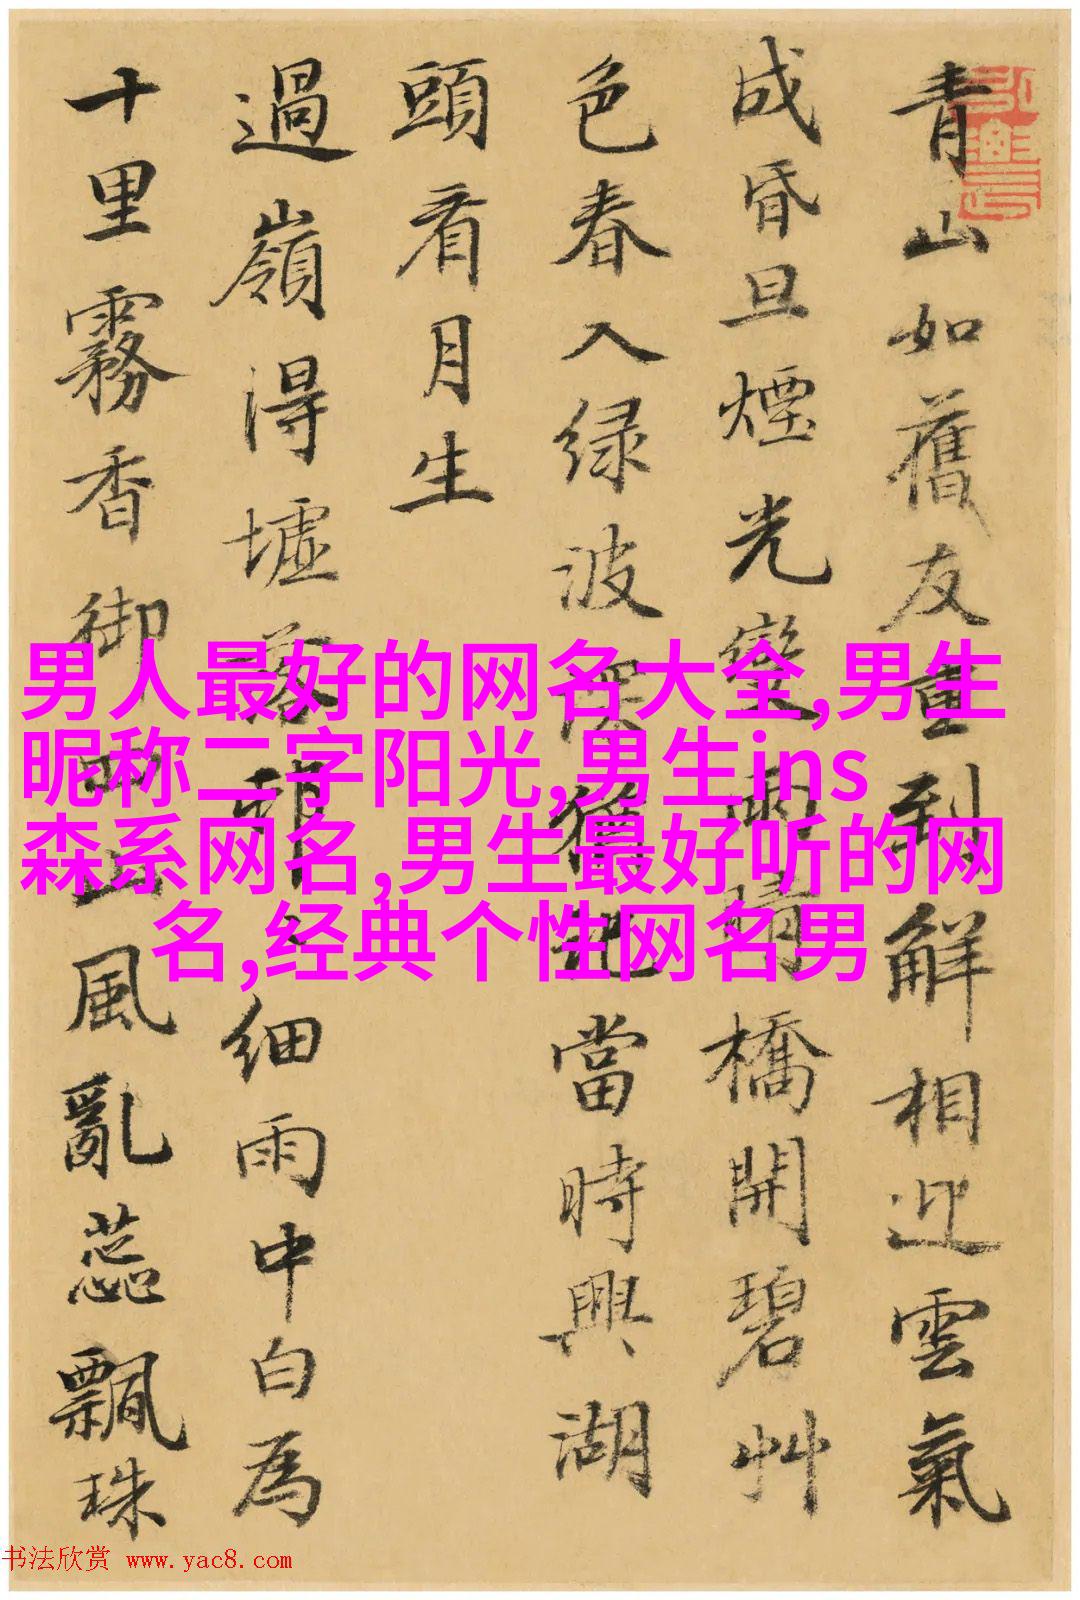 青山如舊友重到解相迎雲氣
成昏旦煙光變雨晴橋開碧艸
色春入绿波深猶此當時興湖
頭看月生
過嶺得墟落
細雨中白為
十里霧香御
風亂蕊飄珠
男人最好的网名大全,男生
昵称二字阳光,男生ins
森系网名,男生最好听的网
名,经典个性网名男
书法欣赏 www.yac8.com